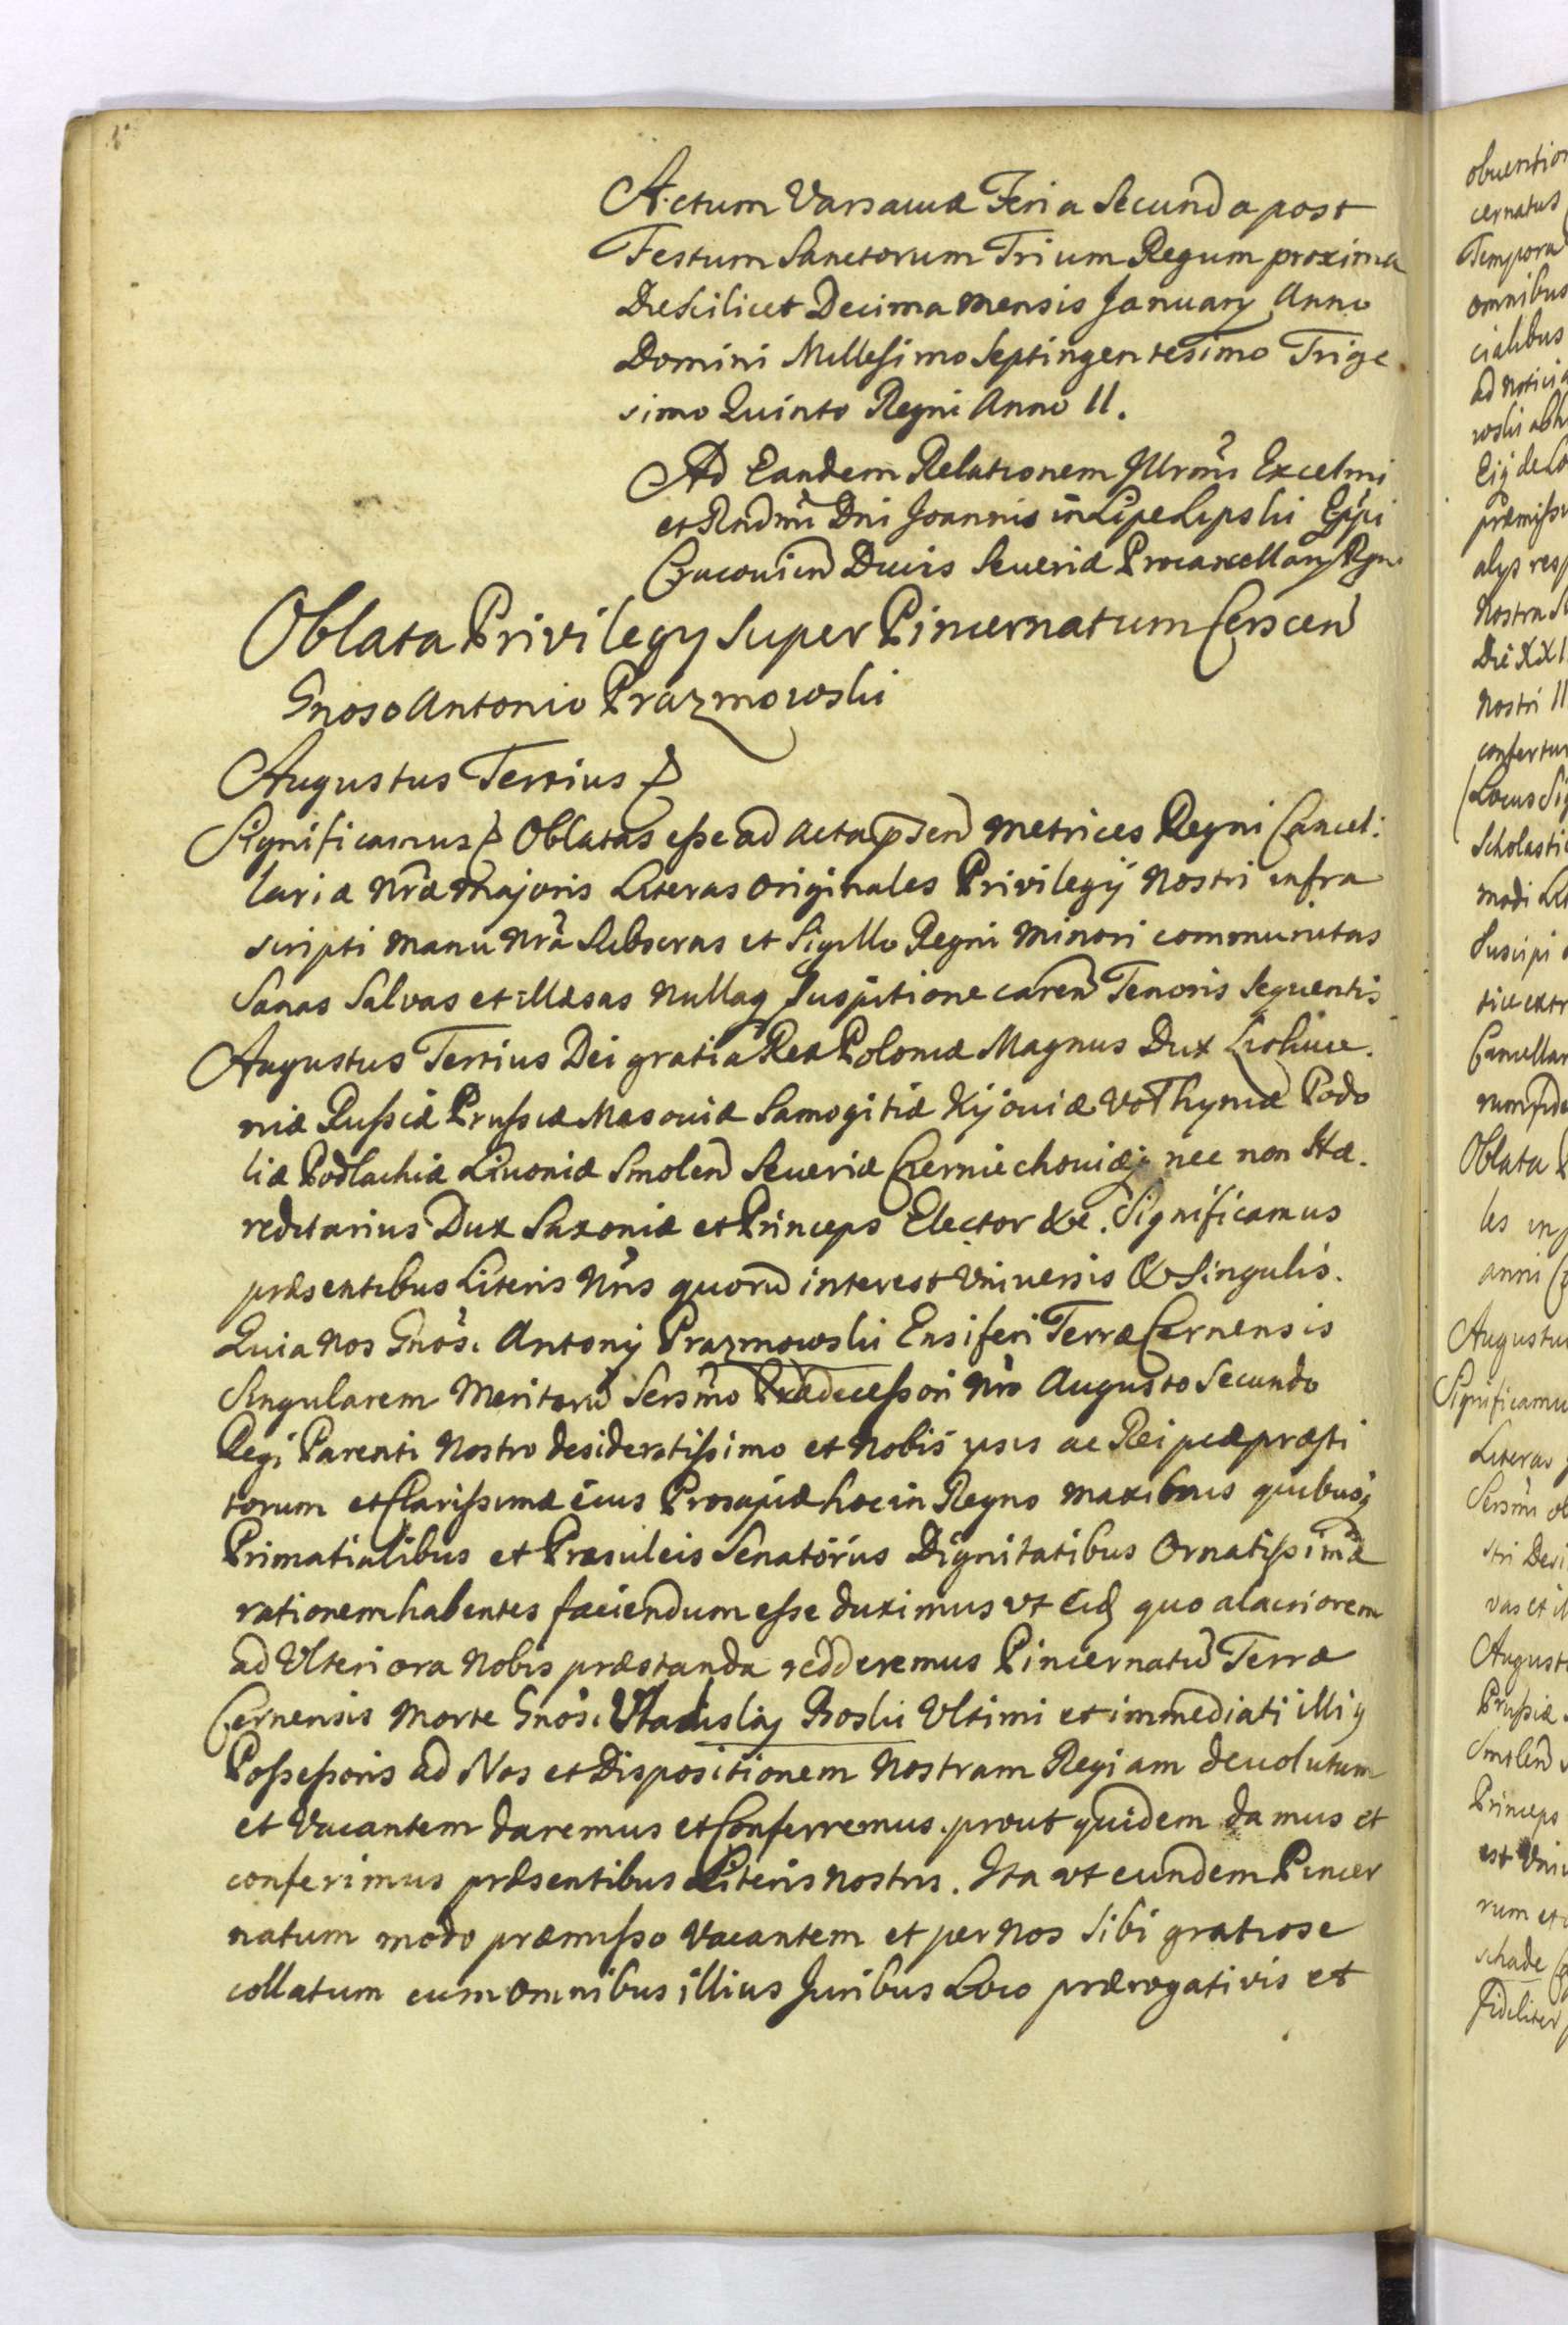 Actum Varsauiæ Feria Secunda post
Festum Sanctorum Trium Regum proxima
Die Scilicet Decima mensis January Anno
Domini Millesimo Septingentesimo Trige
simo Quinto Regni Anno II.
Ad Eandem Relationem Illrmi Excelmi
et Rndmi Dni Joannis in Lipe Lipski Eppi
Cracouien Ducis Seueriæ Procancellary Regni
Oblata Privilegy Super Pincernatum Cerscen
Gnoso Antonio Prazmowski
Augustus Tertius
Significamus Oblatas esse ad Acta psen Metrices Regni Cancel:
lariæ Nræ Majoris Literas Originales Privilegij Nostri infra
scripti manu Nra Subscras et Sigillo Regni Minori communitas
Sanas Salvas et illæsas Nullaq Suspitione caren Tenoris Sequentis
Augustus Tertius Dei gratia Rex Poloniæ Magnus Dux Lithua.
niæ Russiæ Prussiæ Masouiæ Samogitiæ Kijouiæ Volhyniæ Podo
liæ Podlachiæ Liuoniæ Smolen Seueriæ Czerniechouiæq nec non Hæ.
reditarius Dux Saxoniæ et Princeps Elector &c. Significamus
præsentibus Literis Nris quoru interest Vniuersis & Singulis.
Quia Nos Gnosi Antonij Prazmowski Ensiferi Terræ Cernensis
Singularem Meritoru Sersmo Prædecessori Nro Augusto Secundo
Regi Parenti Nostro desideratissimo et Nobis ipsis ac Reipcæ præsti
torum et Clarissimæ eius Prosapiæ hoc in Regno maximis quibusq
Primatialibus et Præsuleis Senatorius Dignitatibus Ornatissimæ
rationem habentes faciendum esse duximus vt Eid quo alacriorem
ad Vlteriora Nobis præstanda redderemus Pincernatu Terræ
Cernensis Morte Gnosi Vladislaj Boski Vltimi et immediati illiq
Possessoris ad Nos et Dispositionem Nostram Regiam deuolutum
et Vacantem daremus et Conferremus. prout quidem damus et
conferimus præsentibus Literis Nostris. Ita vt eundem Pincer
natum modo præmisso Vacantem et per Nos Sibi gratiose
collatum cum Omnibus illius Juribus Loco prærogativis et